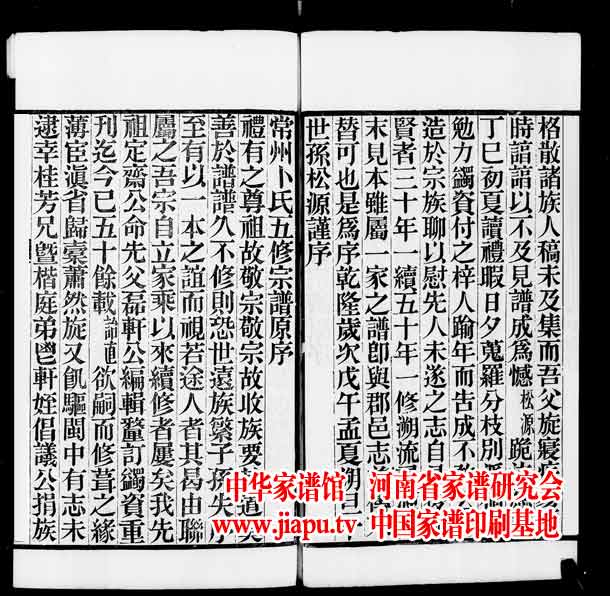 格散諸族人稿未及集而吾父旋寢疾
時諳諳以不及見譜成為憾松源跪
丁巳初夏讀禮暇日夕蒐羅分枝別
勉力蠲資付之梓人踰年而告成不
造於宗族聊以慰先人未遂之志自
賢者三十年一續五十年一修溯流
末見本雖屬一家之譜卽與郡邑志
替可也是為序乾隆歲次戊午孟夏朔日
世孫松源謹序
常州卜氏五修宗譜原序
禮有之尊祖故敬宗敬宗故收族要道
善於譜譜久不修則恐世遠族繁子孫失
至有以一本之誼而視若途人者其曷由聯
屬之吾宗自立家乘以來續修者屢矣我先
祖定齋公命先父磊軒公編輯釐訂蠲資重
刊迄今已五十餘載諭直欲嗣而修葺之緣
薄宦滇省歸橐蕭然旋又飢驅閩中有志未
逮幸桂芳兄曁楷庭弟鬯軒姪倡議公捐族
中华家谱馆 河南省家谱研究会
www.jiapu.tv 中国家谱印刷基地